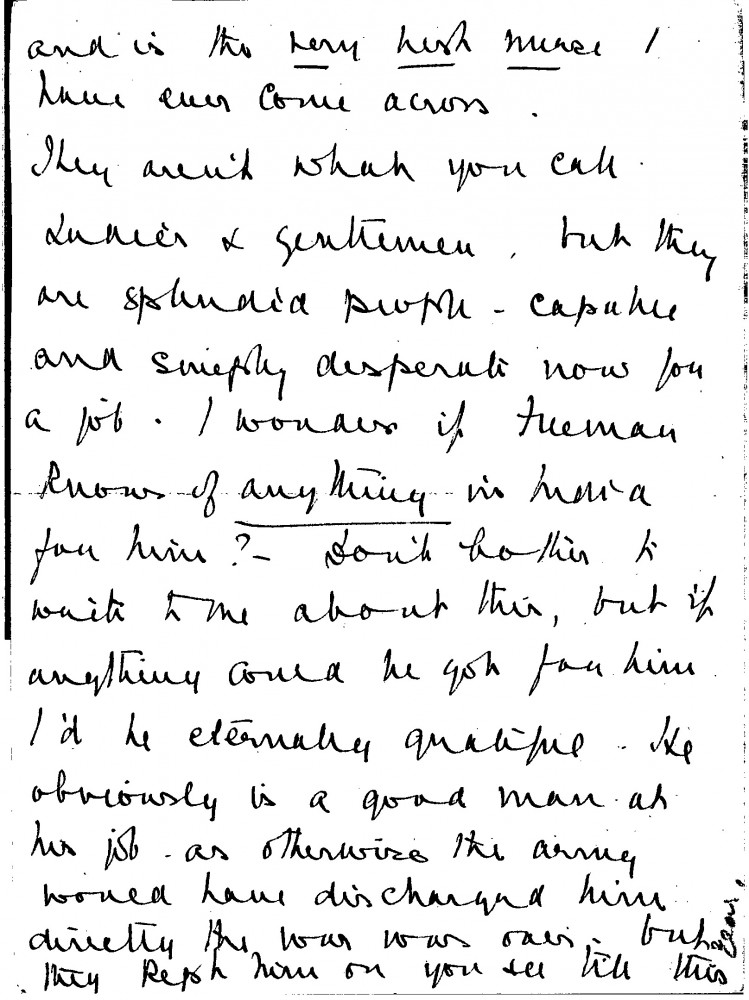 and is the very best nurse I
have ever come across.
They aren't what you call
Ladies & gentlemen, but they
are splendid people - capable
and simply desperate now for
a job. I wonder if Freeman
knows of anything in India
for him? - Don't bother to
write to me about this, but if
anything could be got for him
I'd be eternally grateful. He
obviously is a good man at
his job - as otherwise the army
would have discharged him
directly the war was over - but
they kept him on you see till this
year.